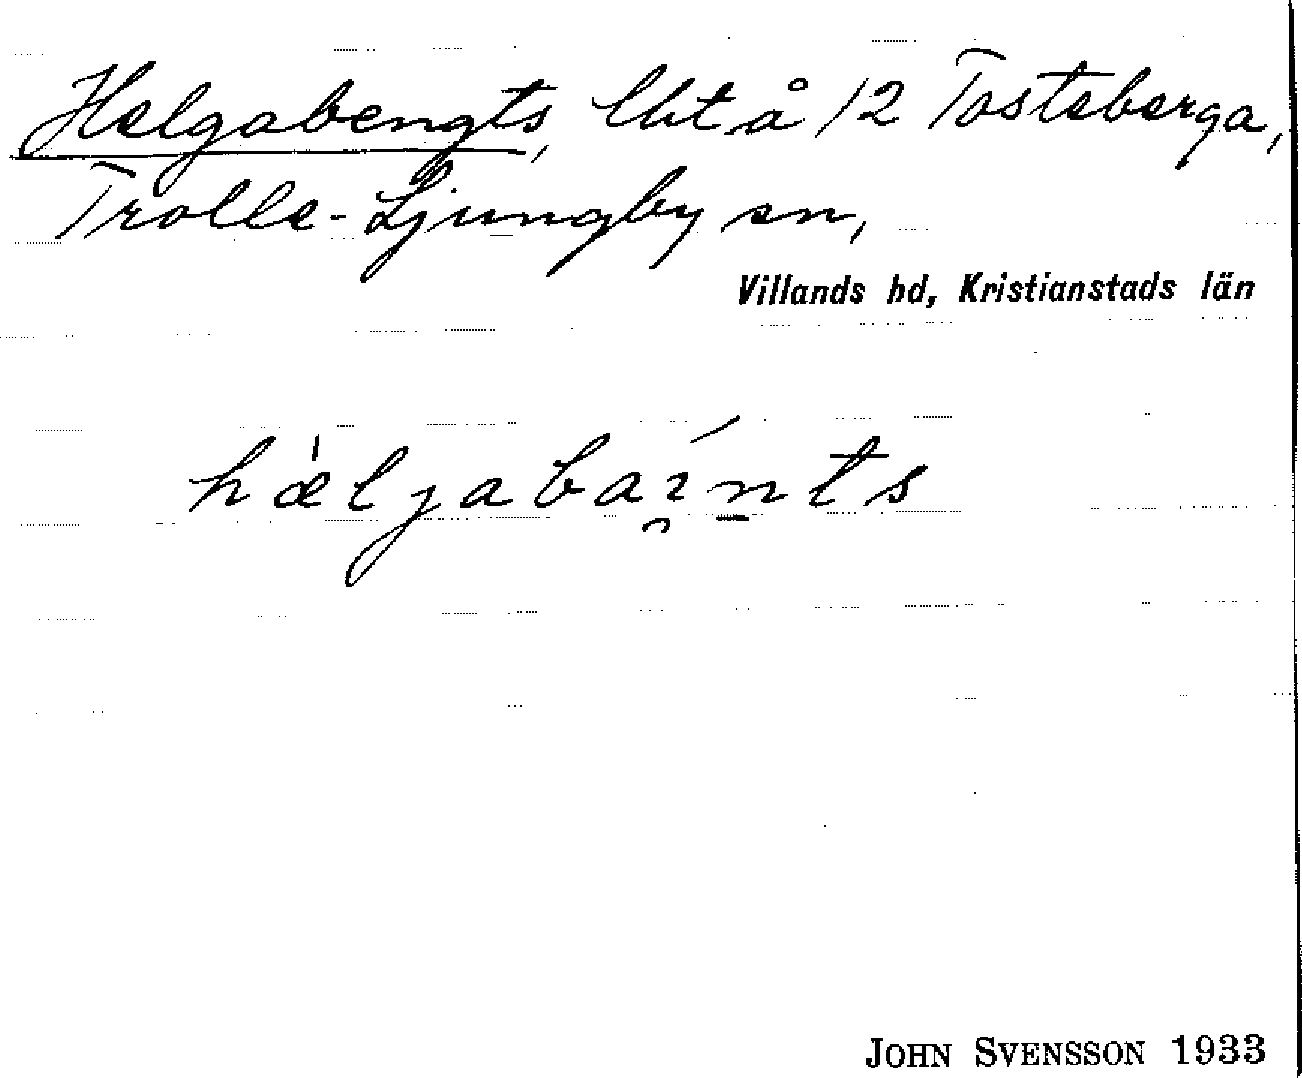 Helgabengts, lht å 12 Tosteberga,
Trolle-Ljungby sn,
Villands hd, Kristianstads län
hæ̀ljabai̯ńts
JOHN SVENSSON 1933